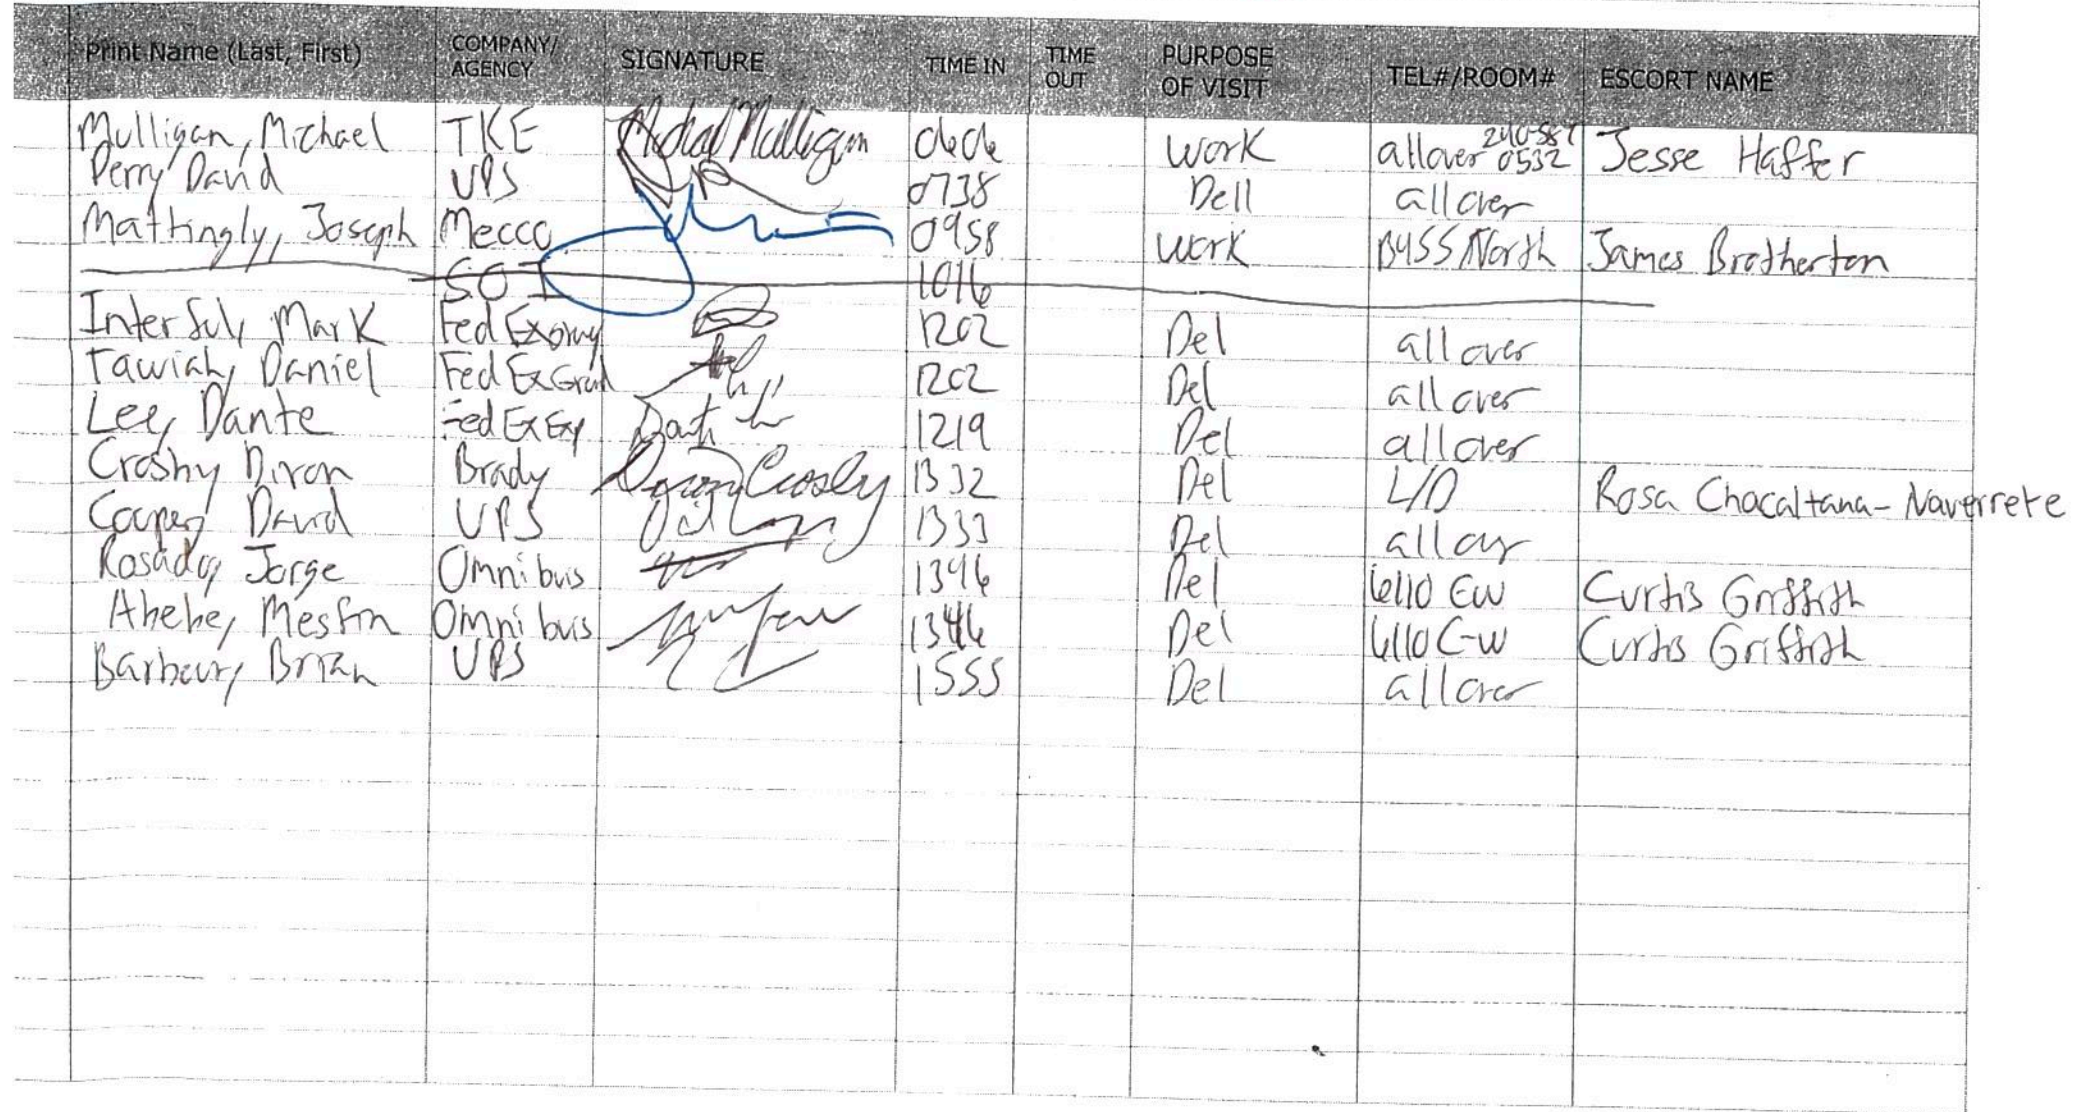 Print Name (Last, First) COMPANY/ AGENCY SIGNATURE TIME IN TIME OUT PURPOSE OF VISIT TEL#/ROOM# ESCORT NAME
Mulligan, Michael TKE Michael Mulligan 0606 work allover 240-587 0532 Jesse Haffer
Perry David UPS 0738 Dell all over
Mattingly, Joseph Mecco 0958 work B455 North James Brotherton
SOI 1016
Mark Fed 1202 Del all over
Tawiah, Daniel Fed ExGrnd 1202 Del all over
Lee, Dante Fed ExExp 1219 Del all over
Crosby Dixon Brady Crosby 1332 Del L/D Rosa Chacaltana-Naverrete
Cooper, David UPS 1333 Del
Rosado, Jorge Omnibus 1346 Del 6110 Curtis Griffith
Abebe, Mesfin Omnibus 1346 Del 6110 C-W Curtis Griffith
Barbour, Brian UPS 1555 Del all over